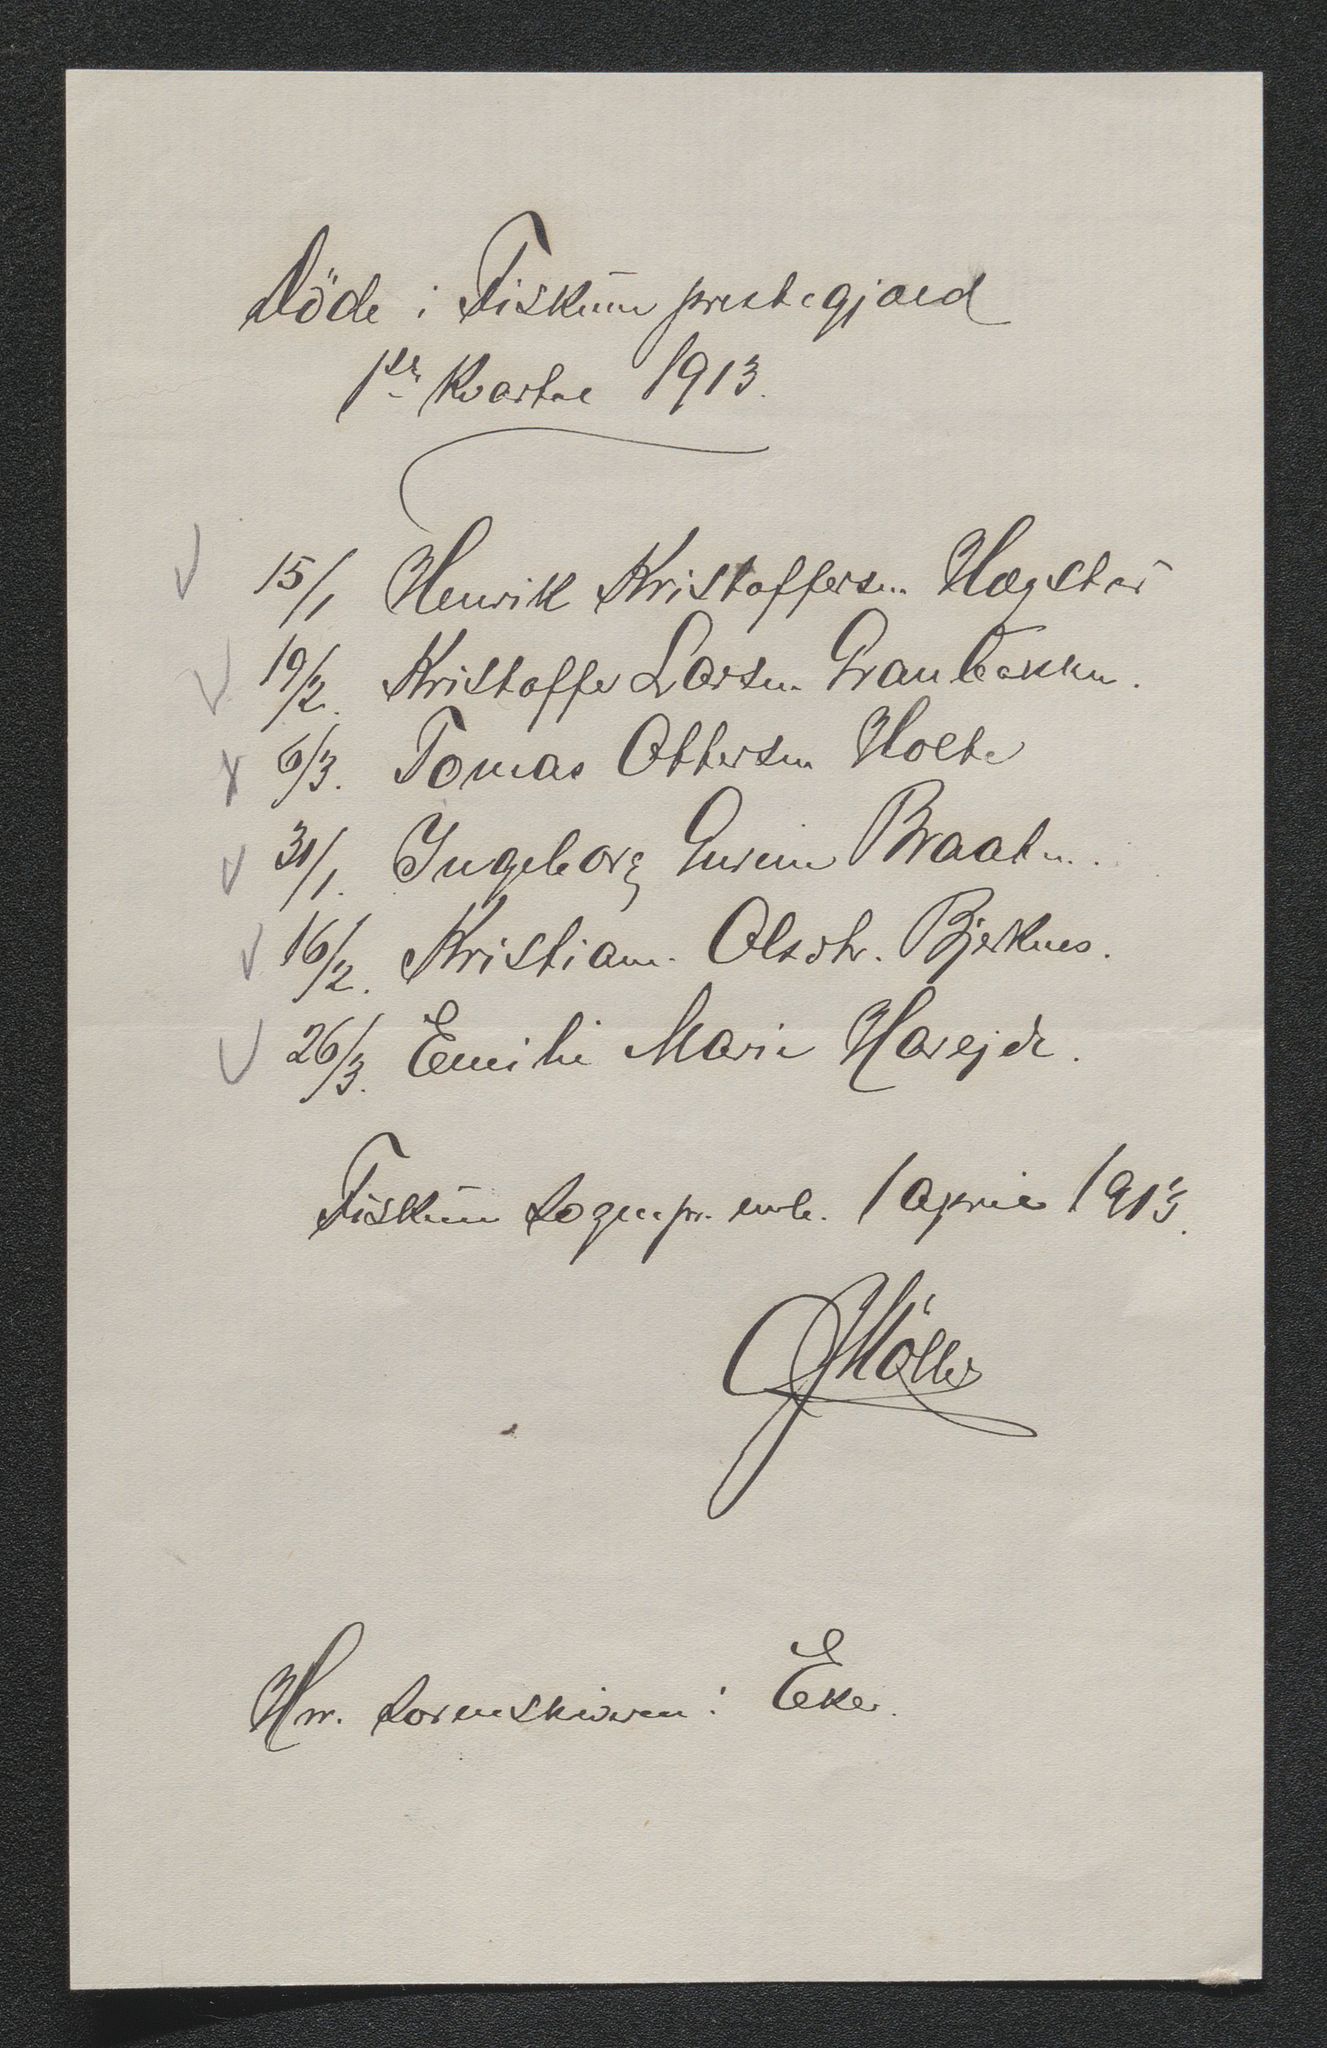 Döde i Fiskum prestegjæld
1ste Kvartal 1913.
15/1 Henrik Kristoffersen Hægstad
19/2. Kristoffer Larsen Granbakken.
6/3. Tomas Ottersen Holte
31/1. Ingeborg Gurine Braaten.
16/2. Kristiane Olsdtr. Bjerknes.
26/3. Emilie Marie Horejde.
Fiskum Sognepr. emb. 1 april 1913.
Möller
Hr. Sorenskriveren i Eker.